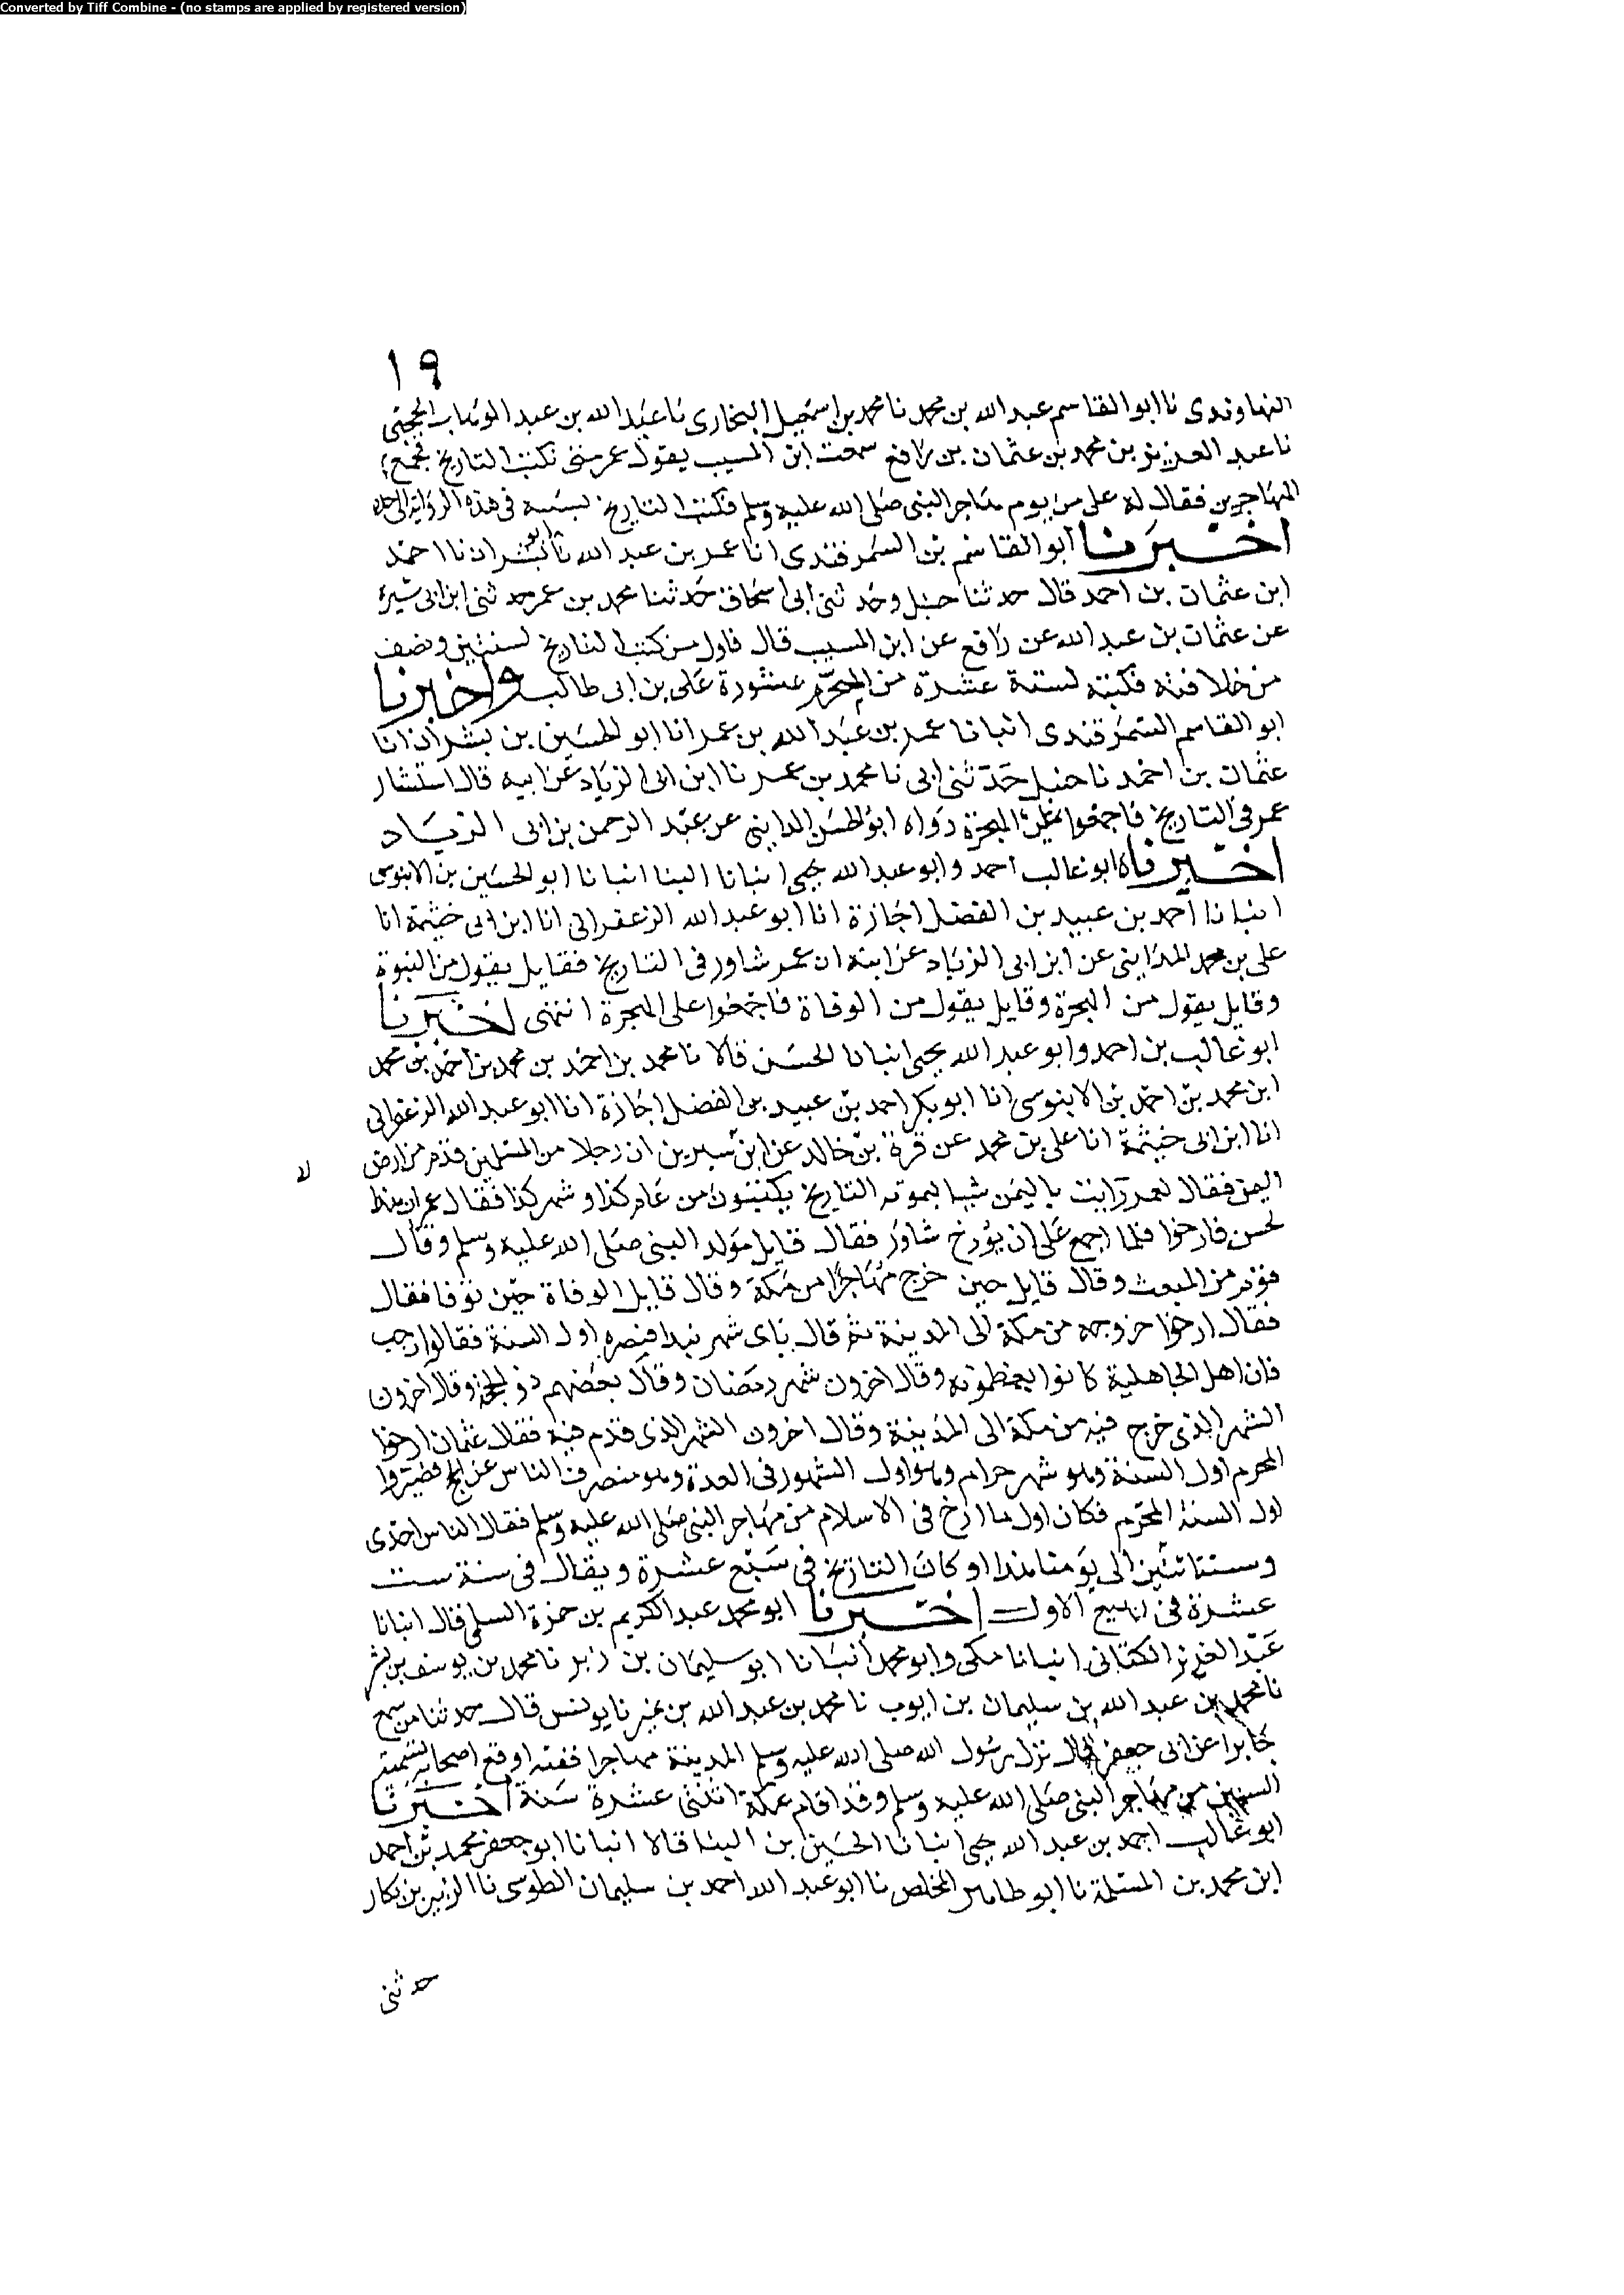 Converted by Tiff Combine - (no stamps are applied by registered version)
١٩
النهاوندى نا ابو القاسم عبد الله بن محمد نا محمد بن اسمعيل البخارى نا عبد الله بن عبد الوهاب الحجبى
نا عبد العزيز بن محمد بن عثمان بن رافع سمعت ابن المسيب يقول عمر متى نكتب التاريخ فجمع
المهاجرين فقال له على من يوم هاجر النبى صلى الله عليه وسلم فكتب التاريخ نسبه فى هذه الرواية الى جده
اخبرنا ابو القاسم بن السمرقندى انا عمر بن عبد الله نا ابو بشران نا احمد
ابن عثمان بن احمد قال حدثنا حنبل وحدثنى ابى اسحاق حدثنا محمد بن عمر حدثنى ابن ابى سبرة
عن عثمان بن عبد الله عن رافع عن ابن المسيب قال فاول من كتب التاريخ لسنتين ونصف
من خلافته فكتبه لستة عشرة من المحرم عشورة على بن ابى طالب واخبرنا
ابو القاسم السمرقندى انبانا عمر بن عبد الله بن عمر انا ابو الحسين بن بشران انا
عثمان بن احمد نا حنبل حدثنى ابى نا محمد بن عمر نا ابن ابى الزياد عن ابيه قال استشار
عمر فى التاريخ فاجمعوا على الهجرة رواه ابو الحسن المداينى عن عبد الرحمن بن ابى الزياد
اخبرناه ابو غالب احمد وابو عبد الله يحيى انبانا البنا انبانا ابو الحسين بن الابنوسى
انبانا احمد بن عبيد بن الفضل اجازة انا ابو عبد الله الزعفرانى انا ابن ابى خيثمة انا
على بن محمد المداينى عن ابن ابى الزياد عن ابيه ان عمر شاور فى التاريخ فقايل يقول من النبوة
وقايل يقول من الهجرة وقايل يقول من الوفاة فاجمعوا على الهجرة انتهى اخبرنا
ابو غالب بن احمد وابو عبد الله يحيى انبانا الحسن قالا نا محمد بن احمد بن محمد بن احمد بن محمد
ابن محمد بن احمد بن الابنوسى انا ابو بكر احمد بن عبيد بن الفضل اجازة انا ابو عبد الله الزعفرانى
انا ابن ابى خيثمة انا على بن محمد عن قرة بن خالد عن ابن سيرين ان رجلا من المسلمين قدم من ارض
اليمن فقال لعمر رايت باليمن شيا يسمونه التاريخ يكتبون من عام كذا وشهر كذا فقال عمر ان هذا
لحسن فارخوا فلما اجمع على ان يؤرخ شاور فقال قايل مولد النبى صلى الله عليه وسلم وقال
قوم من المبعث وقال قايل حين خرج مهاجرا من مكة وقال قايل الوفاة حين توفا فقال
فقال ارخوا خروجه من مكة الى المدينة ثم قال باى شهر نبدا فنصيره اول السنة فقالوا رجب
فان اهل الجاهلية كانوا يعظمونه وقال اخرون شهر رمضان وقال بعضهم ذو الحجة وقال اخرون
الشهر الذى خرج فيه من مكة الى المدينة وقال اخرون الشهر الذى قدم فيه فقال عثمان ارخوا
المحرم اول السنة وهو شهر حرام وهو اول الشهور فى العدة وهو منصرف الناس عن الحج فصيروا
اول السنة المحرم فكان اول ما ارخ فى الاسلام من مهاجر النبى صلى الله عليه وسلم فقال الناس احدى
وسنتا ثنين الى يومنا هذا وكان التاريخ فى سبع عشرة ويقال فى سنة ست
عشرة فى ربيع الاول اخبرنا ابو محمد عبد الكريم بن حمزة السلمى قال انبانا
عبد العزيز الكتانى انبانا مكى وابو محمد انبانا ابو سليمان بن زبر نا محمد بن يوسف بن بشر
نا محمد بن عبد الله بن سليمان بن ايوب نا محمد بن عبد الله بن نمير نا يونس قال حدثنا من سمع
جابرا عن ابى جعفر قال نزل رسول الله صلى الله عليه وسلم المدينة مهاجرا ففيه اوقع اصحابه تسمية
السنين من مهاجر النبى صلى الله عليه وسلم وقد اقام بمكة اثنتى عشرة سنة اخبرنا
ابو غالب احمد بن عبد الله يحيى انبانا الحسين بن البنا قالا انبانا ابو جعفر محمد بن احمد
ابن محمد بن المسلمة نا ابو طاهر المخلص نا ابو عبد الله احمد بن سليمان الطوسى نا الزبير بن بكار
حدثنى